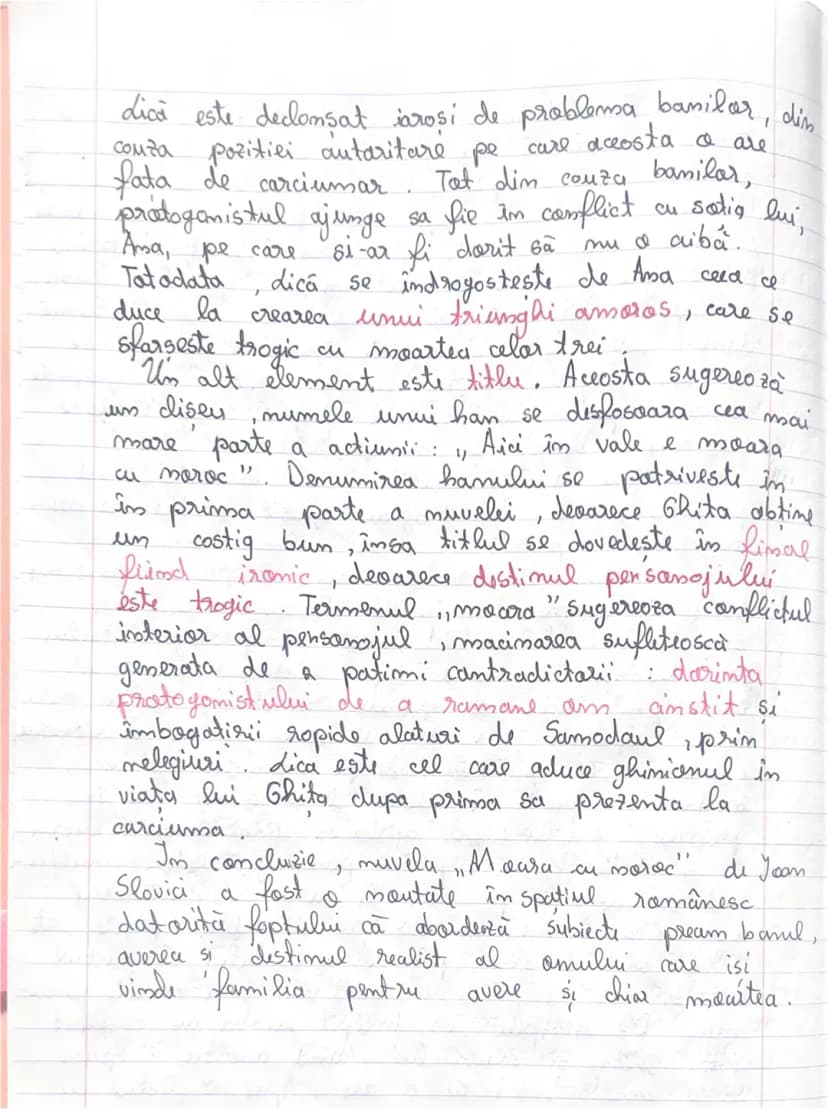 Lică este declanșat iarosi de problema banilor, din
couza pozitiei autoritare pe care aceosta o are
fata de carciumar. Tot din couza banilor,
protogonistul ajunge sa fie în conflict cu sotia lui,
Ana, pe care si-ar fi dorit să nu o aibă.
Totodata, Lică se îndrogosteste de Ana ceea ce
duce la crearea unui triunghi amoros, care se
sfarseste trogic cu moartea celor trei.
Un alt element este titlu. Aceosta sugereoză
un clișeu, numele unui han se desfosoara cea mai
mare parte a actiunii: „Aici în vale e moara
cu noroc". Denumirea hanului se patriveste în
în prima parte a nuvelei, deoarece Ghita obține
un costig bun, însa titlul se dovedește în final
fiind ironic, deoarece destinul personajului
este trogic. Termenul „moara" sugereoza conflictul
interior al personajul, macinarea sufleteoscă
generata de a patimi contradictorii: dorința
protogonistului de a ramane om cinstit și
îmbogatirii ropide alaturi de Samadaul, prin
nelegiuri. Lica este cel care aduce ghinionul în
viața lui Ghița dupa prima sa prezenta la
carciuma.
In concluzie, nuvela „Moara cu noroc" de Ioan
Slovici a fost o noutate în spațiul românesc
datorită foptului că abordeoză subiecte pream banul,
averea si destinul realist al omului care isi
vinde familia pentru avere și chiar moartea.